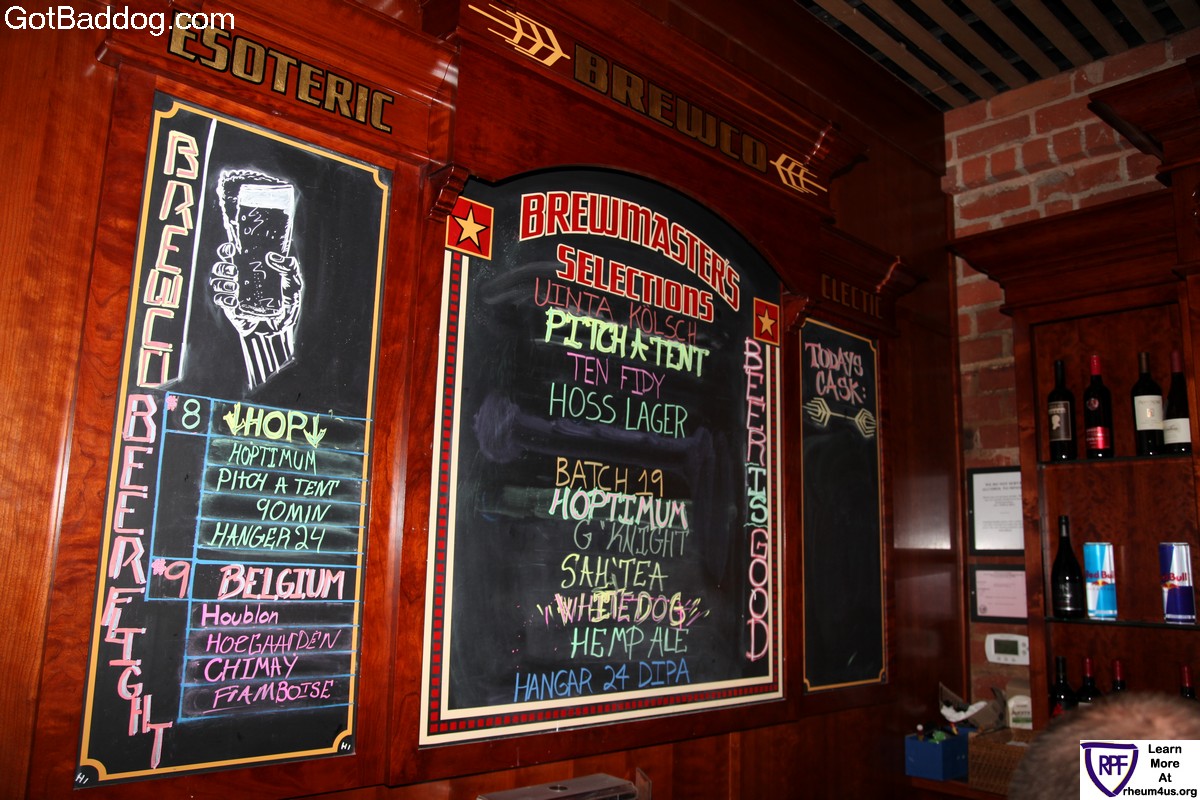 GotBaddog.com
ESOTERIC
BREWCO
CLECTIC
BREWCO BEER FLIGHT
#8 HOP
HOPTIMUM
PITCH A TENT
90 MIN
HANGER 24
#9 BELGIUM
Houblon
HOEGAARDEN
CHIMAY
FRAMBOISE
HI
HI
BREWMASTER'S
SELECTIONS
UINTA KOLSCH
PITCH A TENT
TEN FIDY
HOSS LAGER
BATCH 19
HOPTIMUM
G'KNIGHT
SAH'TEA
WHITE DOG
HEMP ALE
HANGAR 24 DIPA
BEER IS GOOD
TODAYS
CASK:
Red Bull
Bull
RPF
Learn
More
At
rheum4us.org